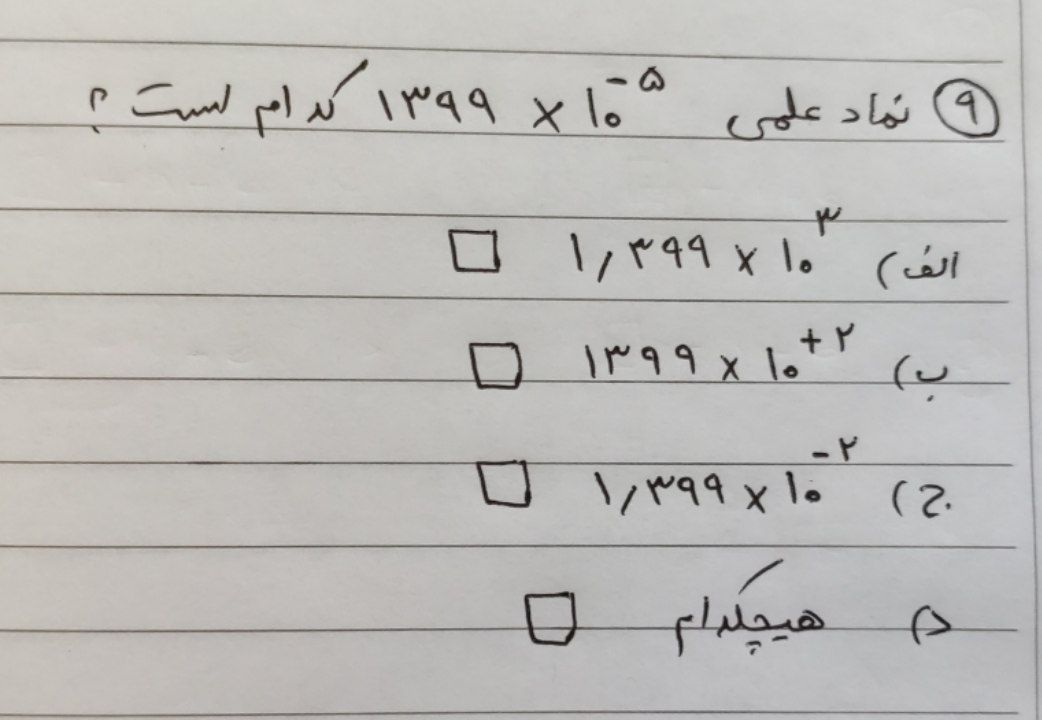 ۹ نماد علمی ۱۳۹۹ × ۱۰⁻⁵ کدام است؟
الف) ۱٫۳۹۹ × ۱۰³
ب) ۱۳۹۹ × ۱۰⁺²
ج) ۱٫۳۹۹ × ۱۰⁻²
د) هیچکدام